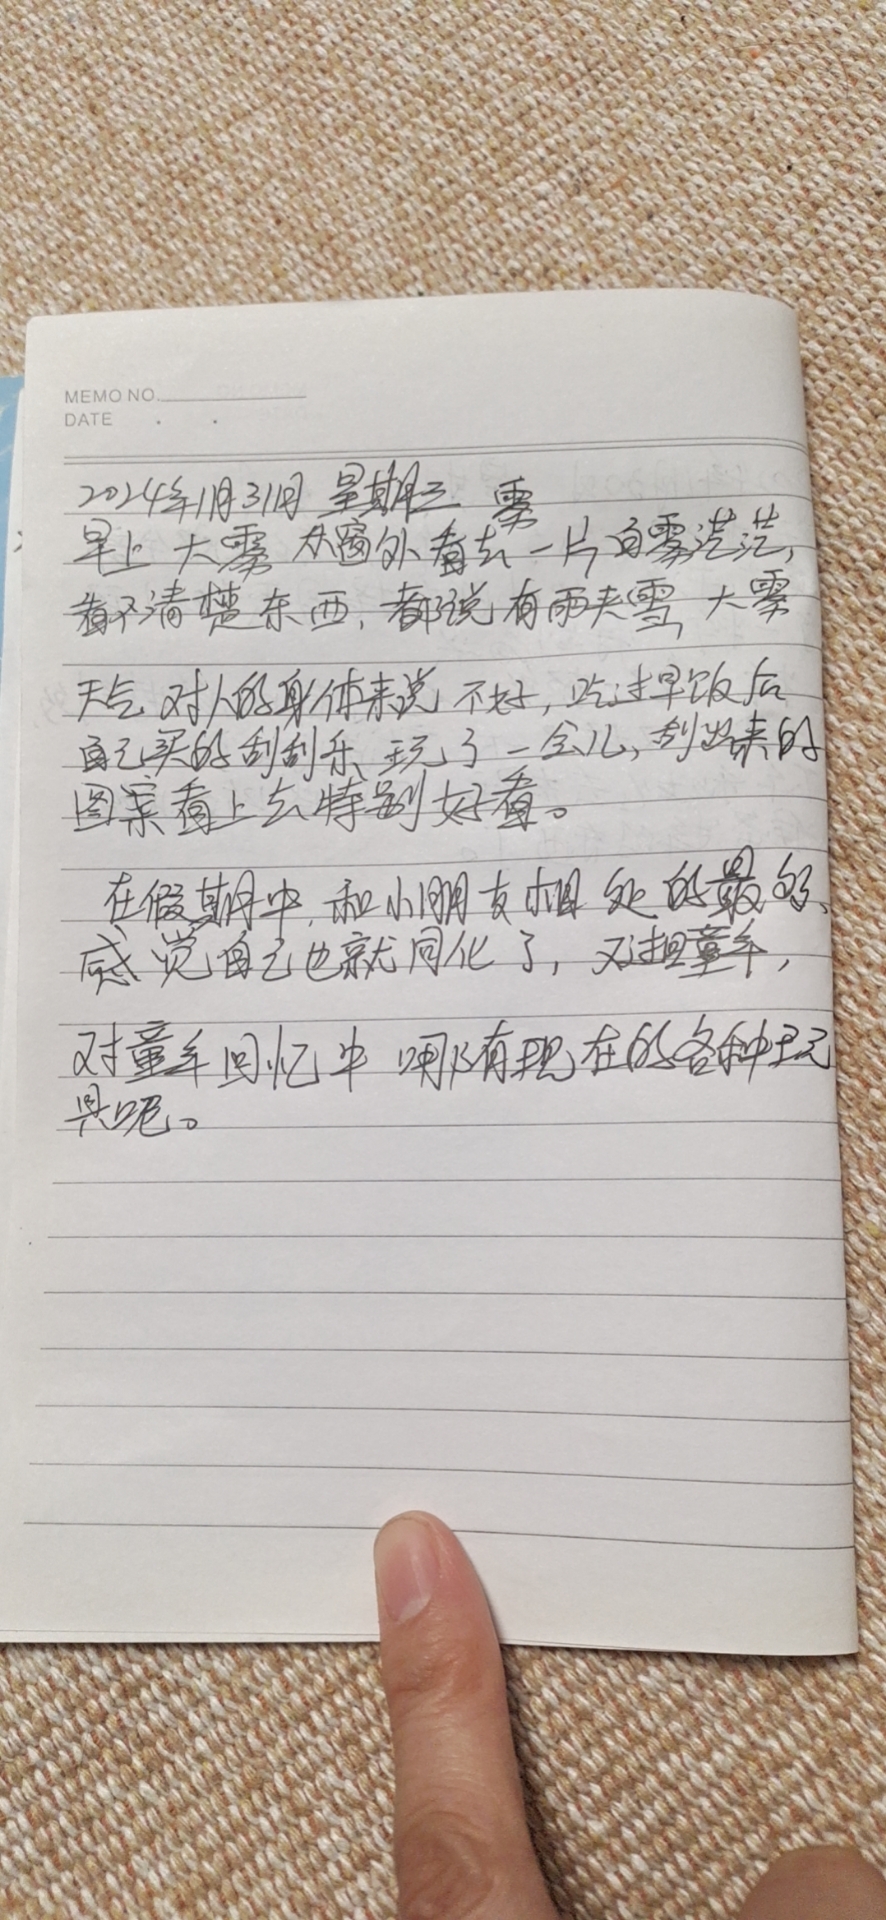 MEMO NO.
DATE . .
2024年1月31日 星期三 雾
早上 大雾 从窗外看去 一片白雾茫茫,
看不清楚东西, 都说有雨夹雪, 大雾
天气 对人的身体来说 不好, 吃过早饭后
自己买的刮刮乐 玩了一会儿, 刮出来的
图案看上去特别好看。
在假期中, 和小朋友相处的最多,
感觉自己也就同化了, 又过童年,
对童年回忆中 哪有现在的各种玩
具呢。